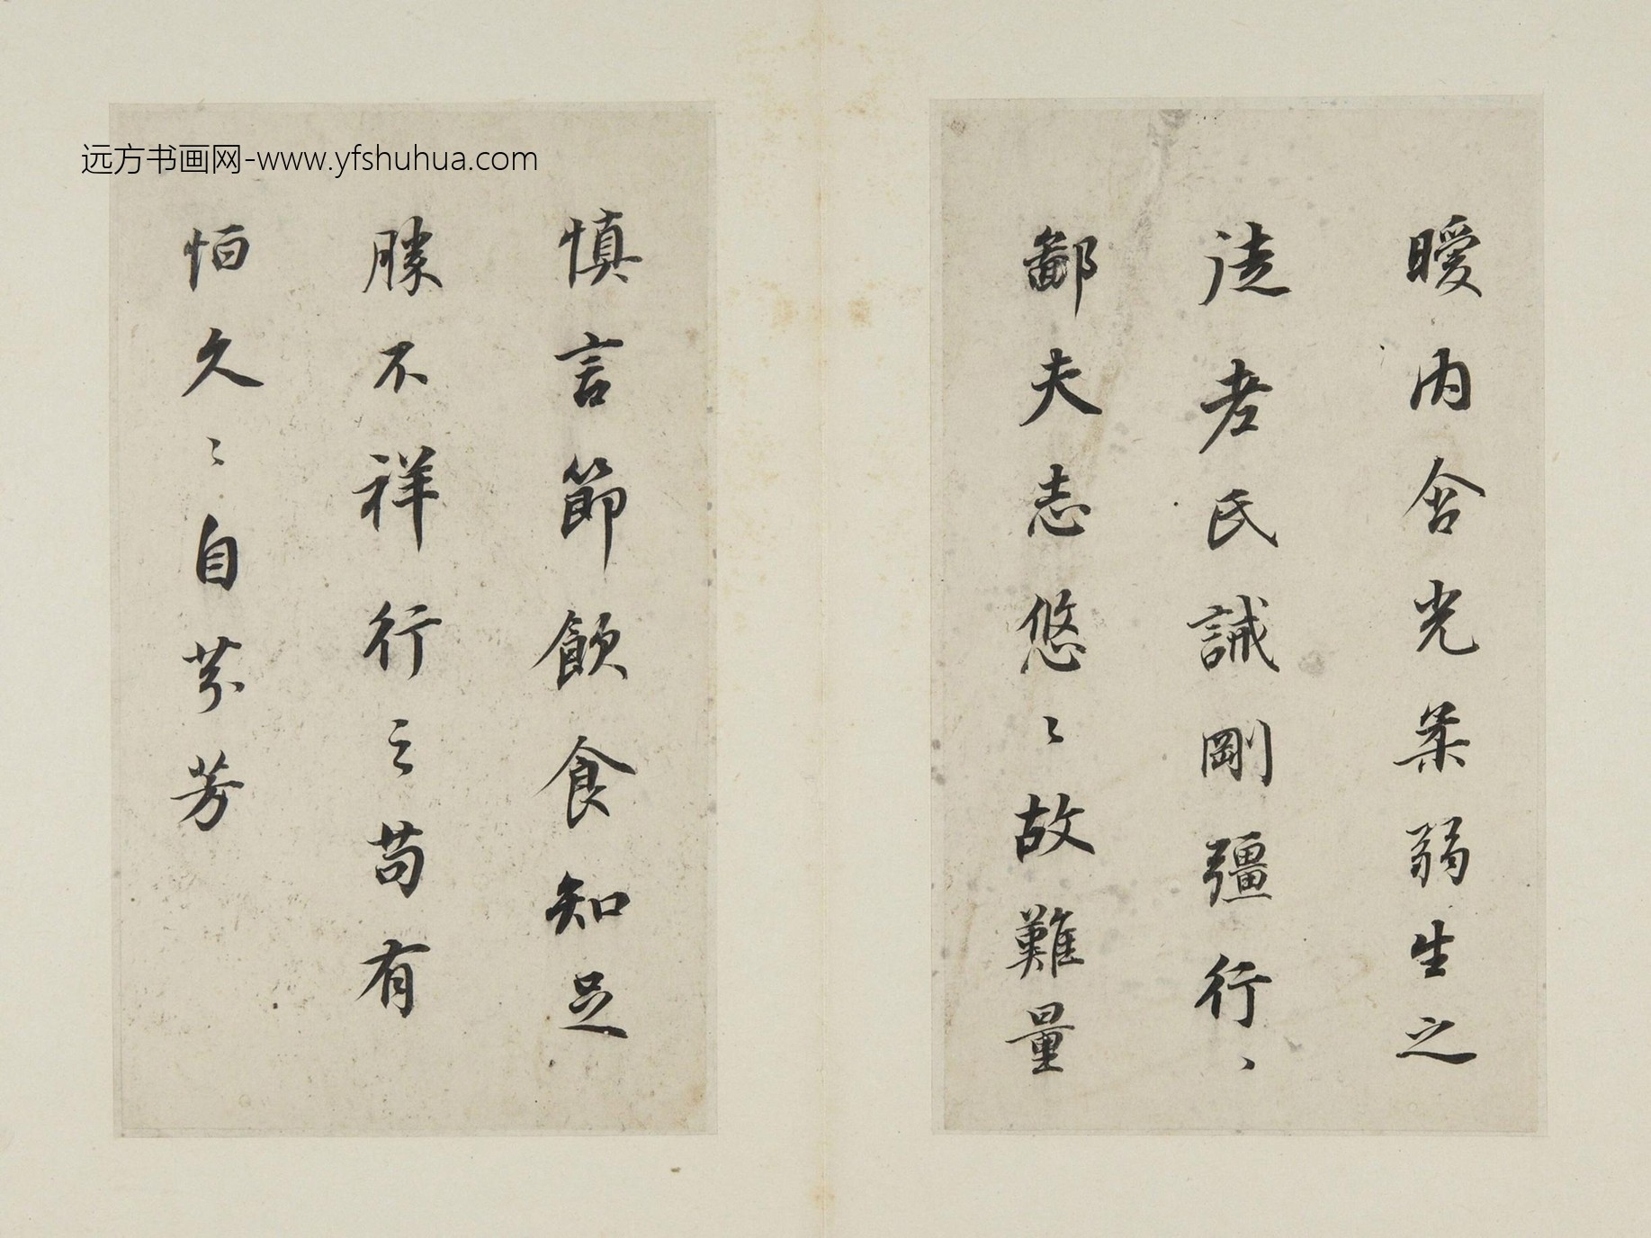 远方书画网-www.yfshuhua.com
曖內含光柔弱生之
徒老氏誡剛彊行〻
鄙夫志悠〻故難量
慎言節飲食知足
勝不祥行之苟有
恒久〻自芬芳